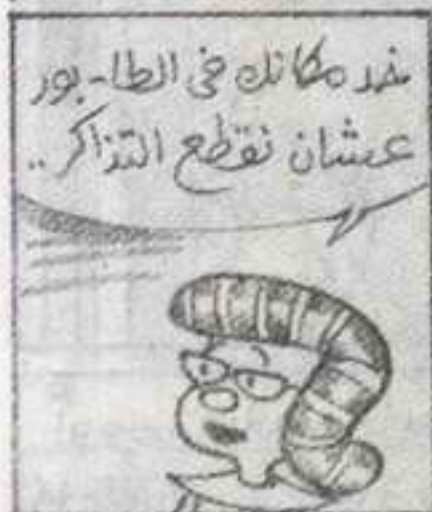 خد مكانك فى الطا-بور
عشان نقطع التذاكر ..